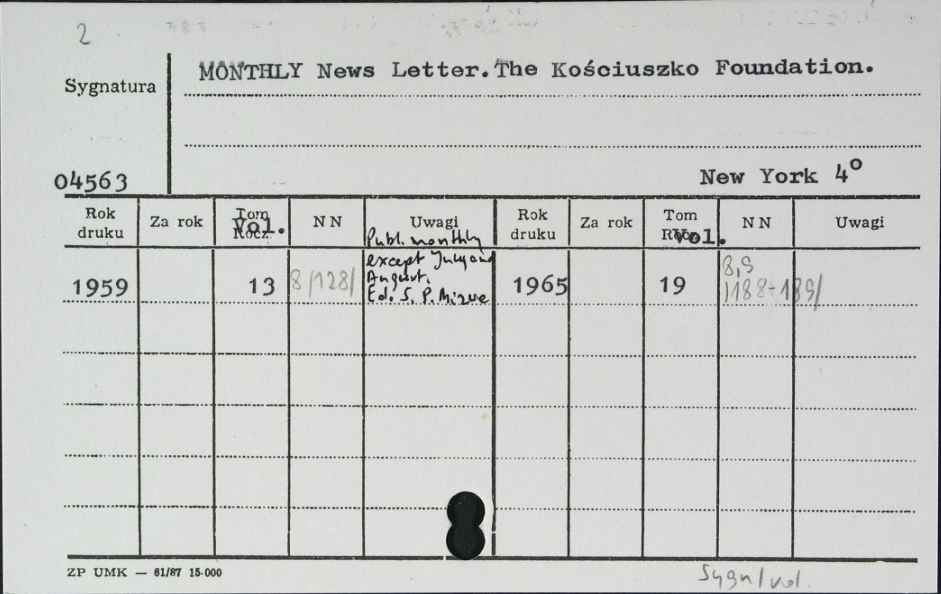 2
MONTHLY News Letter. The Kościuszko Foundation.
Sygnatura
New York 4°
04563
Rok druku Za rok Tom Rocz. Vol. NN Uwagi Rok druku Za rok Tom Vol. NN Uwagi
Publ. monthly
except July and
August.
Ed. S. P. Mizwe
1959 13 8/128/ 1965 19 8,9
/188+189/
ZP UMK — 61/87 15-000
Sygn/vol.